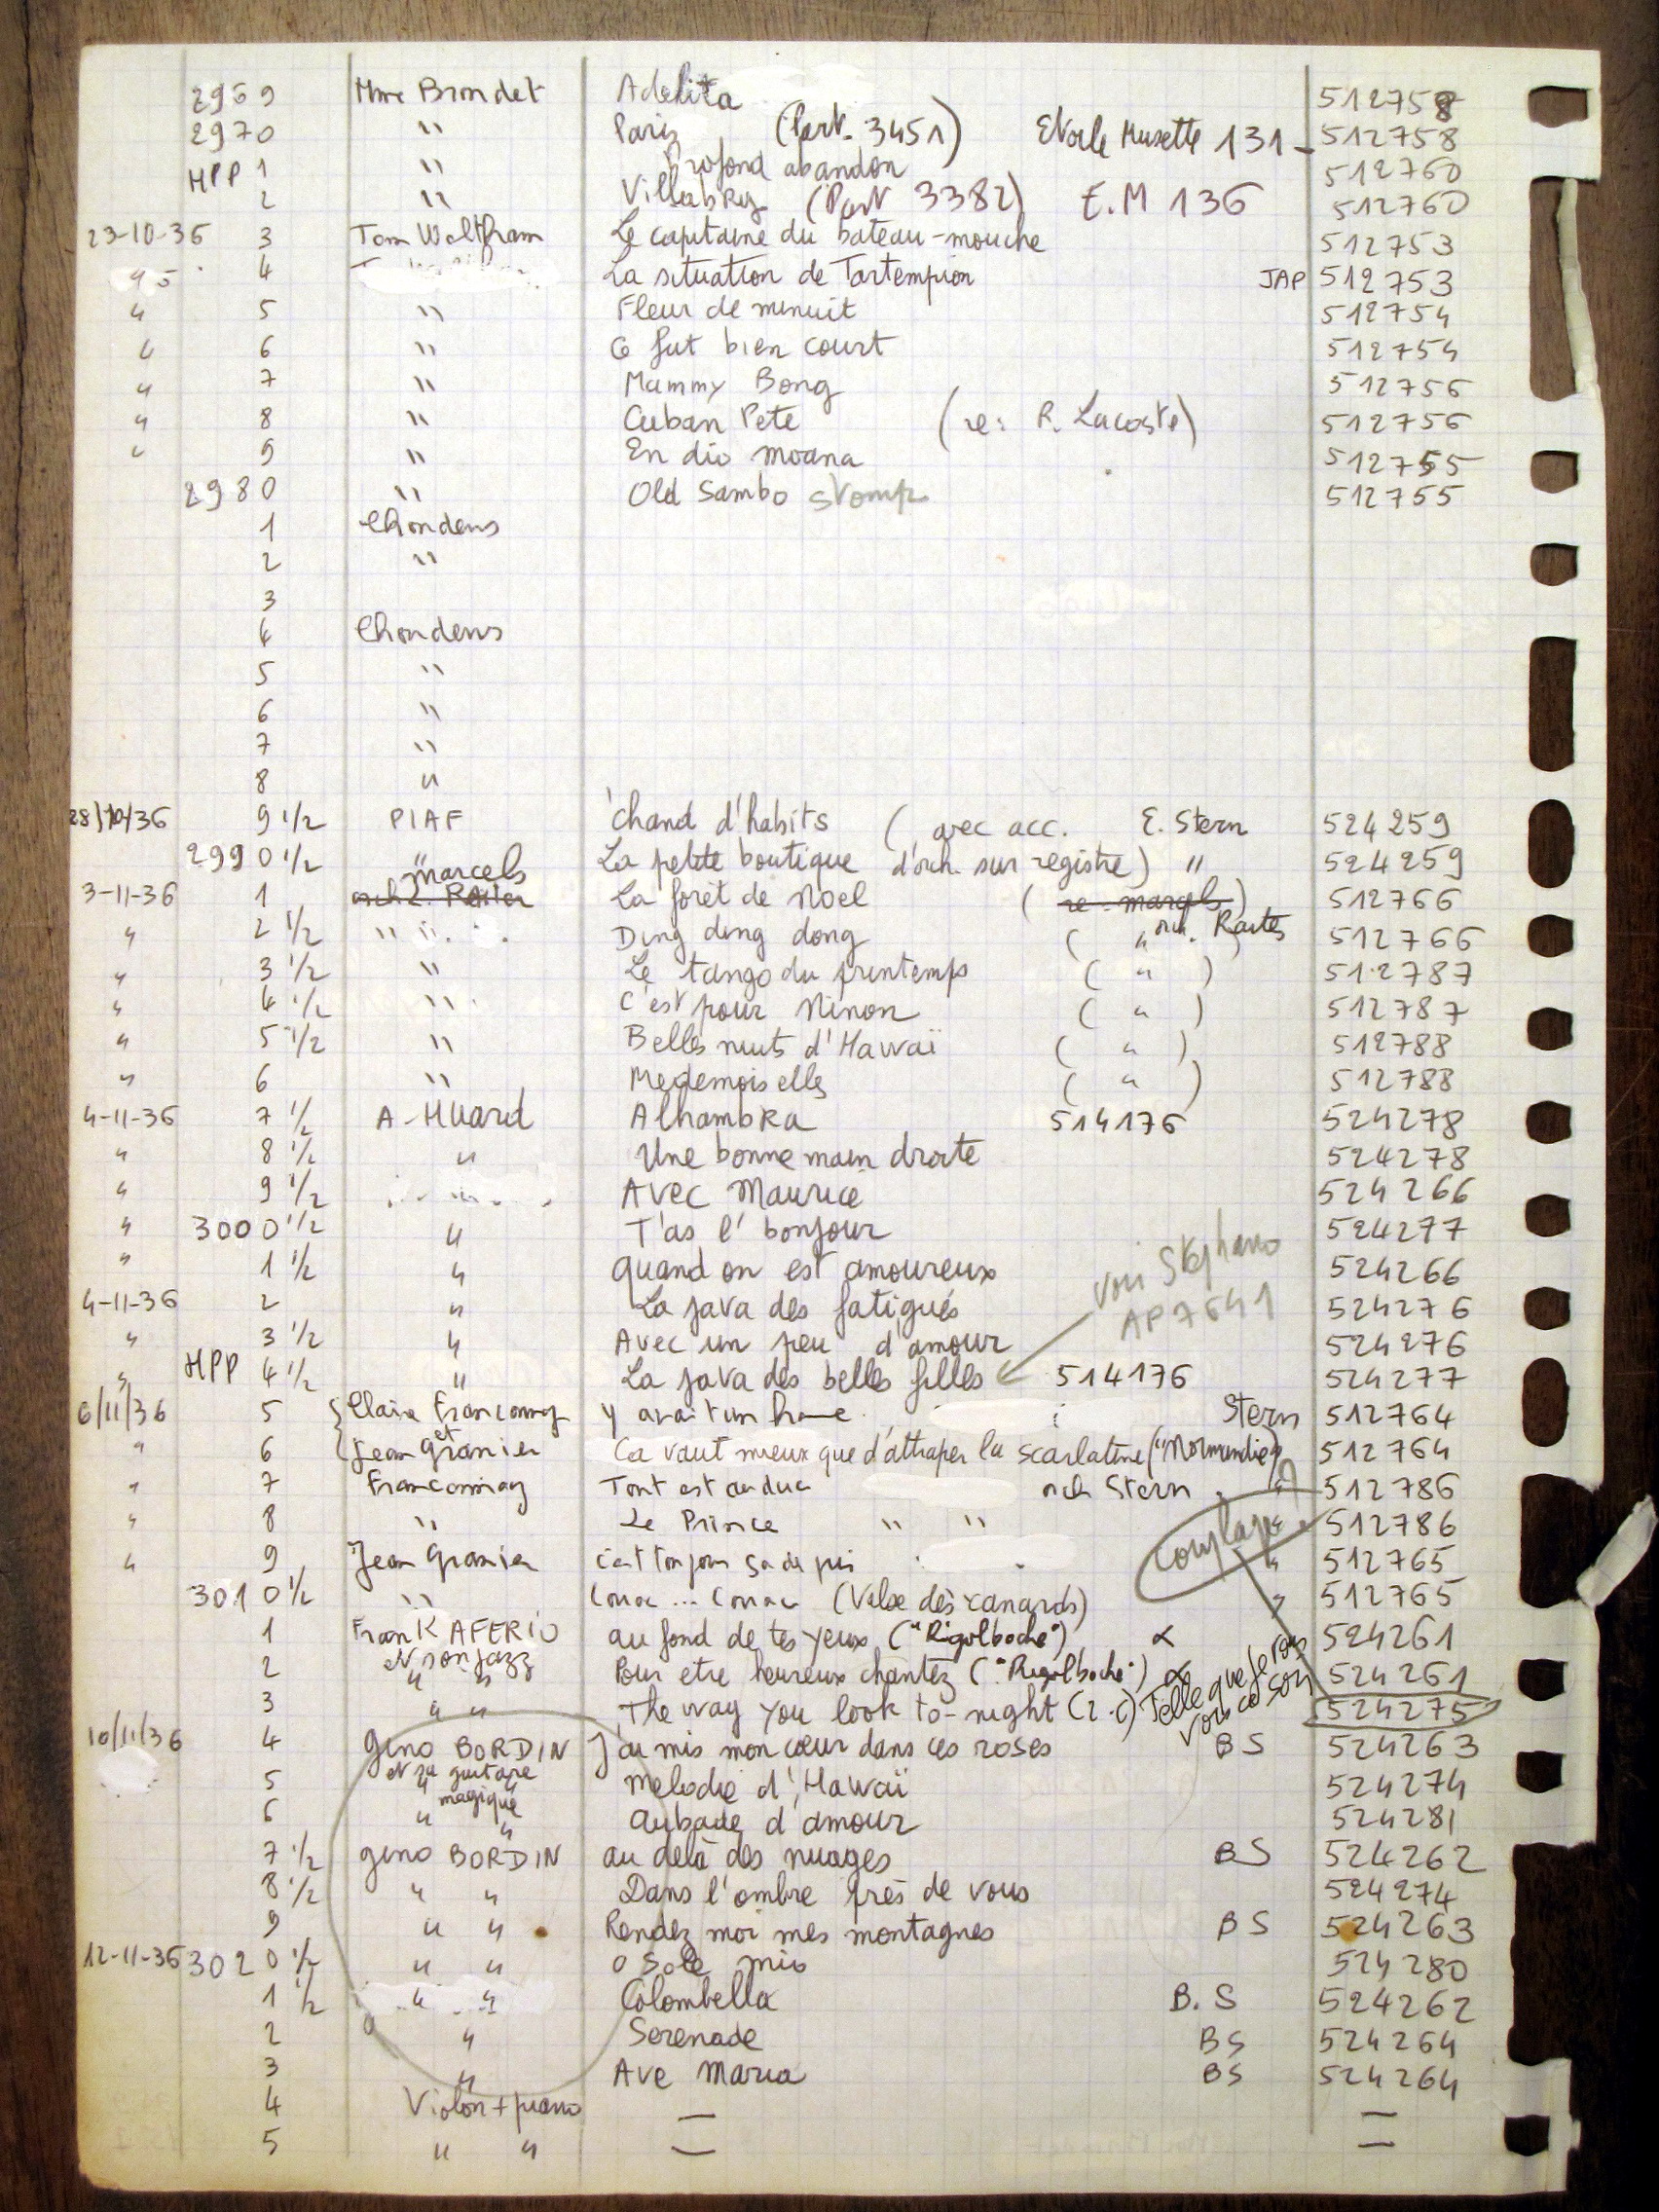 2969 Mme Brondet Adelita 512758
2970 " Paris (Part. 3451) Etoile Musette 131 - 512758
HPP 1 " Profond abandon 512760
2 " Villabrey (Part 3382) E.M 136 512760
23-10-36 3 Tom Waltham Le capitaine du bateau-mouche 512753
4 La situation de Tartempion JAP 512753
" 5 " Fleur de minuit 512754
" 6 " Ce fut bien court 512754
" 7 " Mammy Bong 512756
" 8 " Cuban Pete (re: R. Lacoste) 512756
" 9 " En dio moana 512755
2980 " Old Sambo stomp 512755
1 Choudens
2 "
3
4 Choudens
5 "
6 "
7 "
8 "
28/10/36 9 1/2 PIAF 'chand d'habits (avec acc. E. Stern 524259
2990 1/2 " La petite boutique d'orch. sur registre) " 524259
marcels
3-11-36 1 La forêt de Noel (re. marcels) 512766
" 2 1/2 " " Ding ding dong ( " orch. Raiter ) 512766
" 3 1/2 " Le tango du printemps ( " ) 512787
" 4 1/2 " C'est pour Ninon ( " ) 512787
" 5 1/2 " Belles nuits d'Hawaï ( " ) 512788
" 6 " Medemoiselle ( " ) 512788
4-11-36 7 1/2 A-Huard Alhambra 514176 524278
" 8 1/2 " Une bonne main droite 524278
" 9 1/2 " Avec Maurice 524266
" 3000 1/2 " T'as l' bonjour 524277
" 1 1/2 " Quand on est amoureux 524266
voir Stephano
AP7641
4-11-36 2 " La java des fatigués 524276
" 3 1/2 " Avec un peu d'amour 524276
" HPP 4 1/2 " La java des belles filles 514176 524277
6/11/36 5 Claire Franconnay Y avait un Stern 512764
et
" 6 Jean Granier Ca vaut mieux que d'attraper la scarlatine ("Normandie") 512764
" 7 Franconnay Tout est au duc orch Stern " 512786
" 8 " Le Prince " " " 512786
couplage
" 9 Jean Granier C'est toujours ça de pris " 512765
3010 1/2 " Couac ... Couac (Valse des canards) " 512765
1 Frank AFERIO au fond de tes yeux ("Rigolboche") α 524261
et son jazz
2 " " Pour etre heureux chantez ("Rigolboche") α 524261
3 " " The way you look to-night (2.c) Telle que je vous vois ce soir 524275
10/11/36 4 Gino BORDIN J'ai mis mon cœur dans ces roses BS 524263
et sa guitare
5 " " Melodie d'Hawaï 524274
magique
6 " " Aubade d'amour 524281
7 1/2 gino BORDIN au delà des nuages BS 524262
8 1/2 " " Dans l'ombre près de vous 524274
9 " " Rendez moi mes montagnes BS 524263
12-11-36 3020 1/2 " " O Sole mio 524280
1 1/2 " " Colombella B.S 524262
2 " Serenade BS 524264
3 " Ave Maria BS 524264
4 Violon + piano — —
5 " " — —